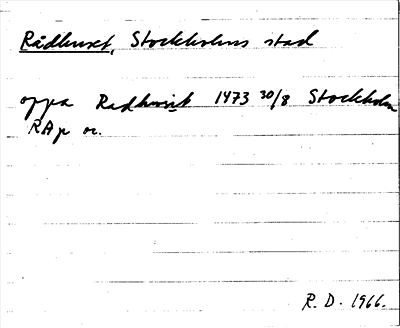 Rådhuset, Stockholms stad
oppa Radhusit 1473 30/8 Stockholm
RAp or.
R. D. 1966.